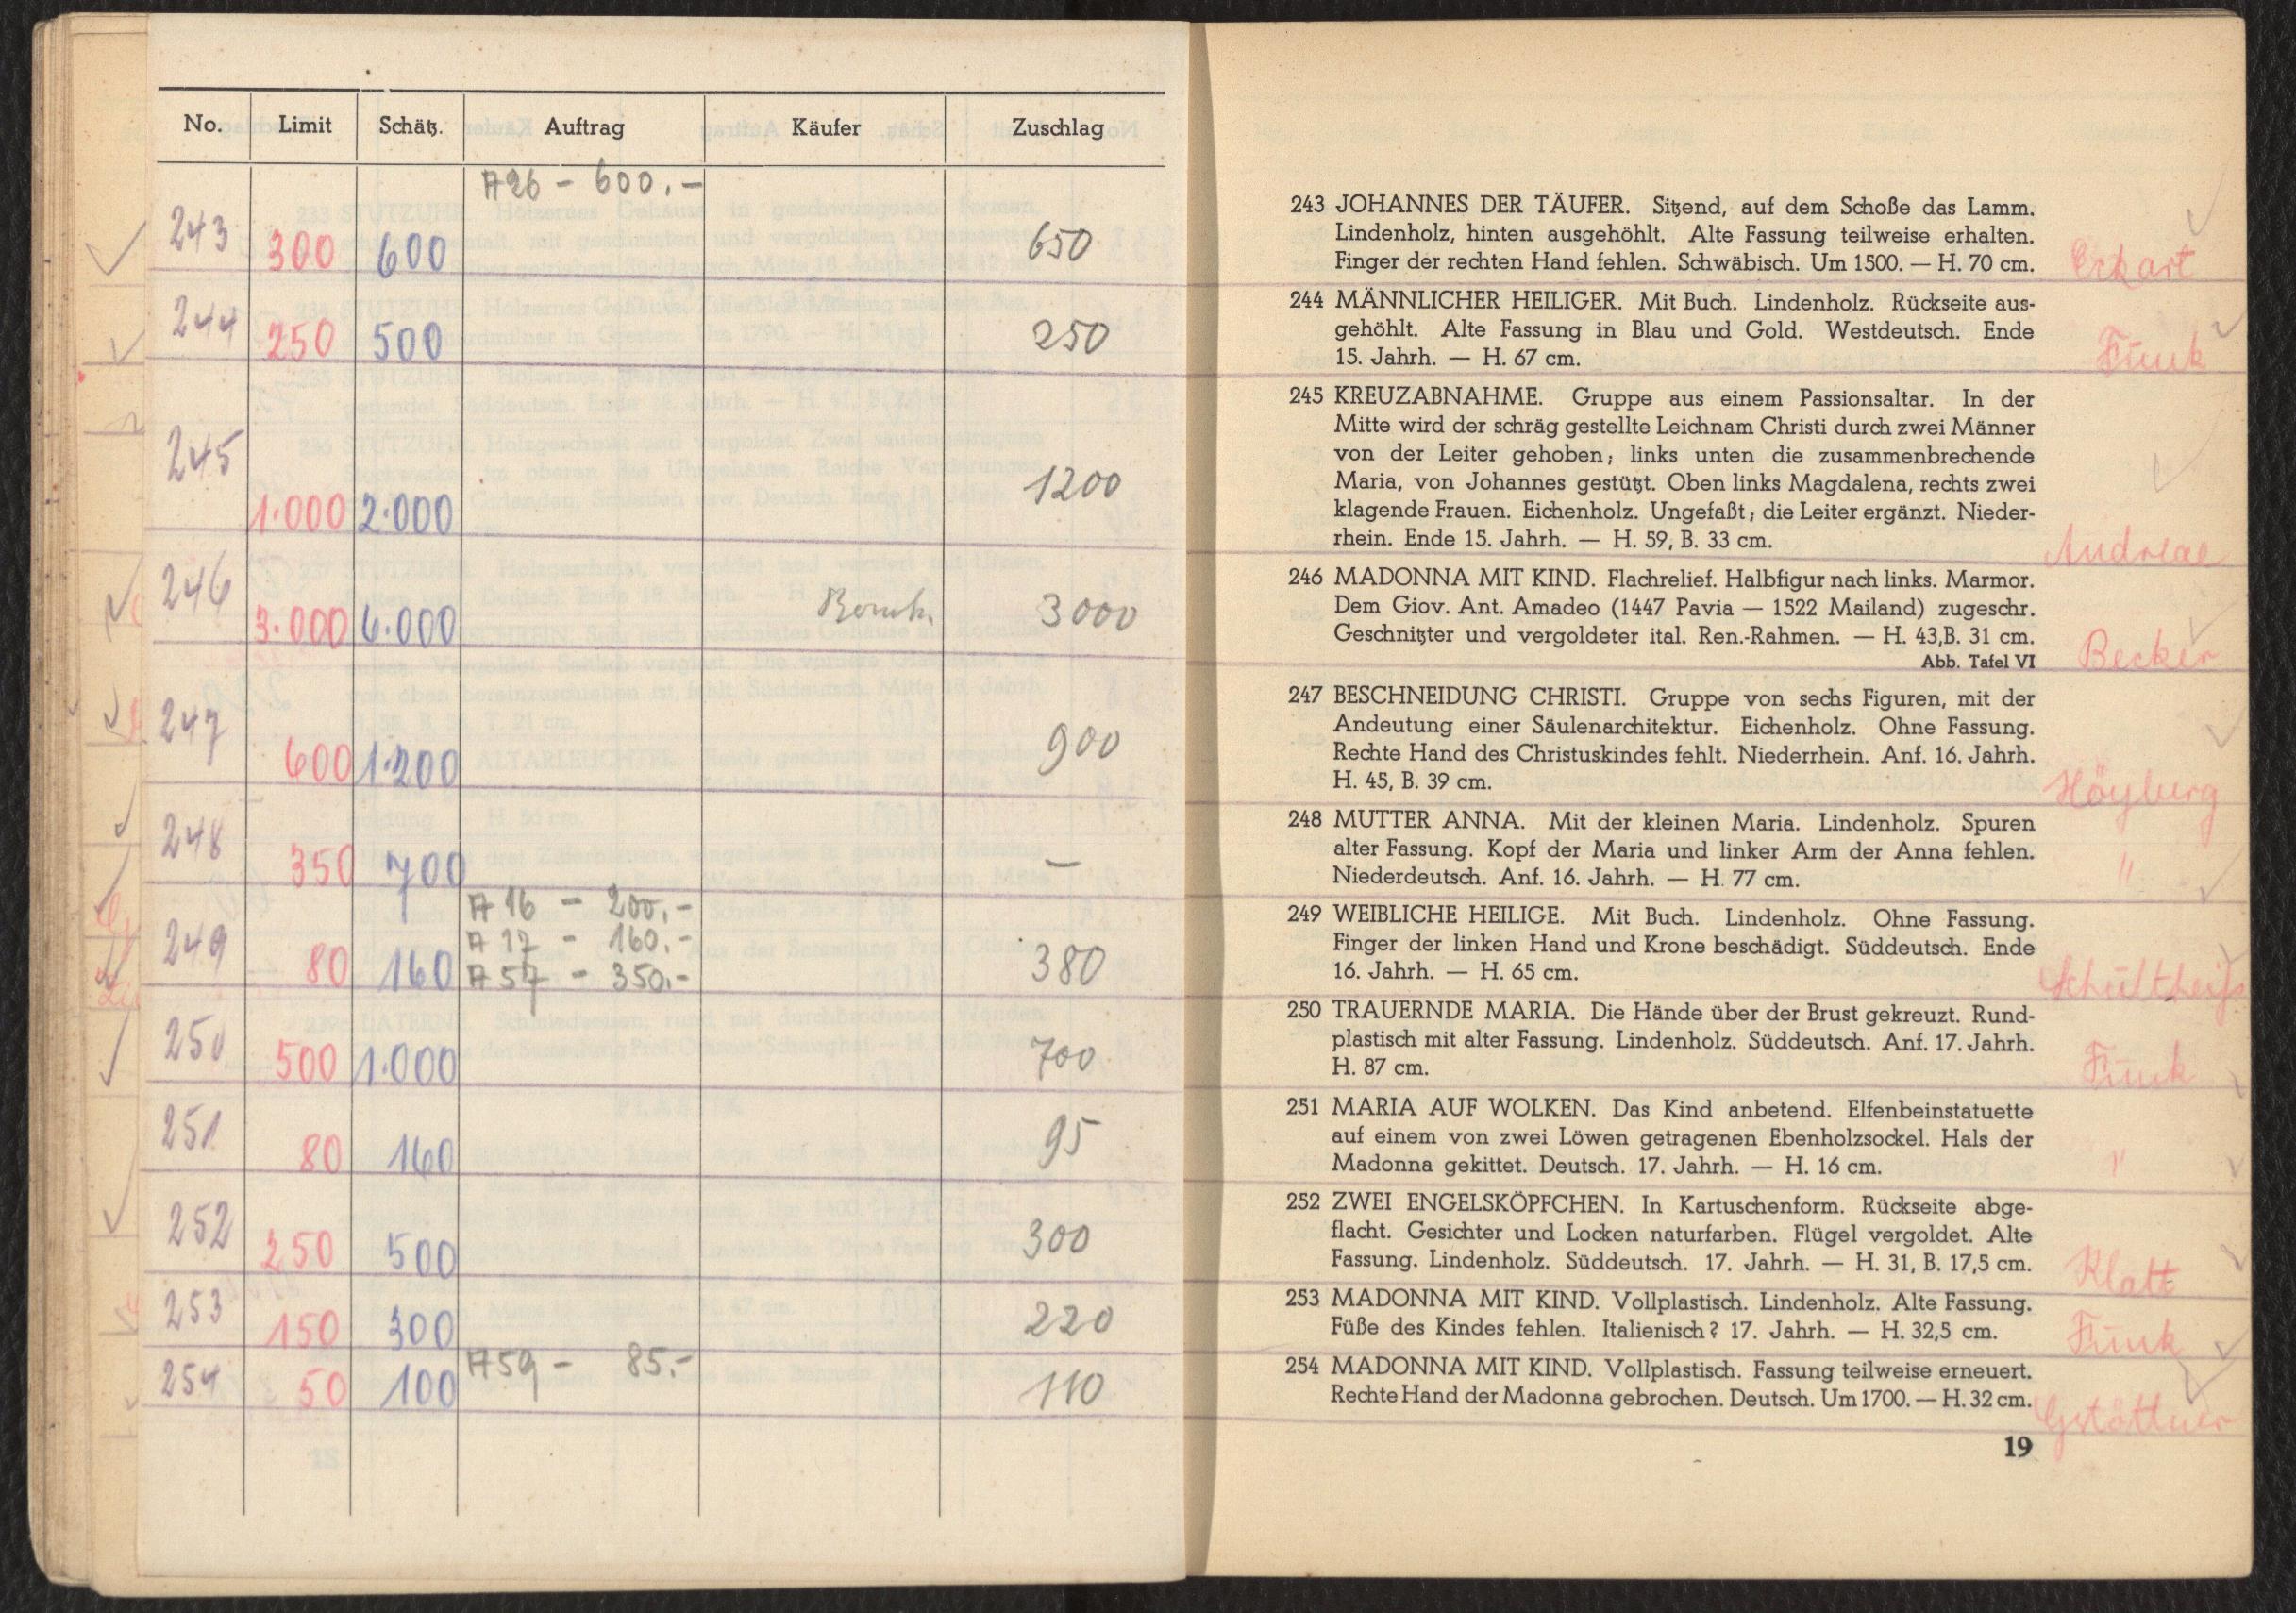 No. Limit Schätz. Auftrag Käufer Zuschlag
A26 - 600.-
243 300 600 650
244 250 500 250
245 1.000 2.000 1200
246 3.000 6.000 3000
247 600 1.200 900
248 350 700 —
A 16 - 200.-
A 17 - 160.-
249 80 160 A 57 - 350.- 380
250 500 1.000 700
251 80 160 95
252 250 500 300
253 150 300 220
A59 - 85.-
254 50 100 110
243 JOHANNES DER TÄUFER. Sitzend, auf dem Schoße das Lamm.
Lindenholz, hinten ausgehöhlt. Alte Fassung teilweise erhalten.
Finger der rechten Hand fehlen. Schwäbisch. Um 1500. — H. 70 cm.
Eckart
244 MÄNNLICHER HEILIGER. Mit Buch. Lindenholz. Rückseite aus-
gehöhlt. Alte Fassung in Blau und Gold. Westdeutsch. Ende
15. Jahrh. — H. 67 cm.
Funk
245 KREUZABNAHME. Gruppe aus einem Passionsaltar. In der
Mitte wird der schräg gestellte Leichnam Christi durch zwei Männer
von der Leiter gehoben; links unten die zusammenbrechende
Maria, von Johannes gestützt. Oben links Magdalena, rechts zwei
klagende Frauen. Eichenholz. Ungefaßt; die Leiter ergänzt. Nieder-
rhein. Ende 15. Jahrh. — H. 59, B. 33 cm.
Andreae
246 MADONNA MIT KIND. Flachrelief. Halbfigur nach links. Marmor.
Dem Giov. Ant. Amadeo (1447 Pavia — 1522 Mailand) zugeschr.
Geschnitzter und vergoldeter ital. Ren.-Rahmen. — H. 43,B. 31 cm.
Abb. Tafel VI
Becker
247 BESCHNEIDUNG CHRISTI. Gruppe von sechs Figuren, mit der
Andeutung einer Säulenarchitektur. Eichenholz. Ohne Fassung.
Rechte Hand des Christuskindes fehlt. Niederrhein. Anf. 16. Jahrh.
H. 45, B. 39 cm.
248 MUTTER ANNA. Mit der kleinen Maria. Lindenholz. Spuren
alter Fassung. Kopf der Maria und linker Arm der Anna fehlen.
Niederdeutsch. Anf. 16. Jahrh. — H. 77 cm.
"
249 WEIBLICHE HEILIGE. Mit Buch. Lindenholz. Ohne Fassung.
Finger der linken Hand und Krone beschädigt. Süddeutsch. Ende
16. Jahrh. — H. 65 cm.
Schultheiss
250 TRAUERNDE MARIA. Die Hände über der Brust gekreuzt. Rund-
plastisch mit alter Fassung. Lindenholz. Süddeutsch. Anf. 17. Jahrh.
H. 87 cm.
Funk
251 MARIA AUF WOLKEN. Das Kind anbetend. Elfenbeinstatuette
auf einem von zwei Löwen getragenen Ebenholzsockel. Hals der
Madonna gekittet. Deutsch. 17. Jahrh. — H. 16 cm.
"
252 ZWEI ENGELSKÖPFCHEN. In Kartuschenform. Rückseite abge-
flacht. Gesichter und Locken naturfarben. Flügel vergoldet. Alte
Fassung. Lindenholz. Süddeutsch. 17. Jahrh. — H. 31, B. 17,5 cm.
Klatt
253 MADONNA MIT KIND. Vollplastisch. Lindenholz. Alte Fassung.
Füße des Kindes fehlen. Italienisch? 17. Jahrh. — H. 32,5 cm.
Funk
254 MADONNA MIT KIND. Vollplastisch. Fassung teilweise erneuert.
Rechte Hand der Madonna gebrochen. Deutsch. Um 1700. — H. 32 cm.
Gstöttner
19